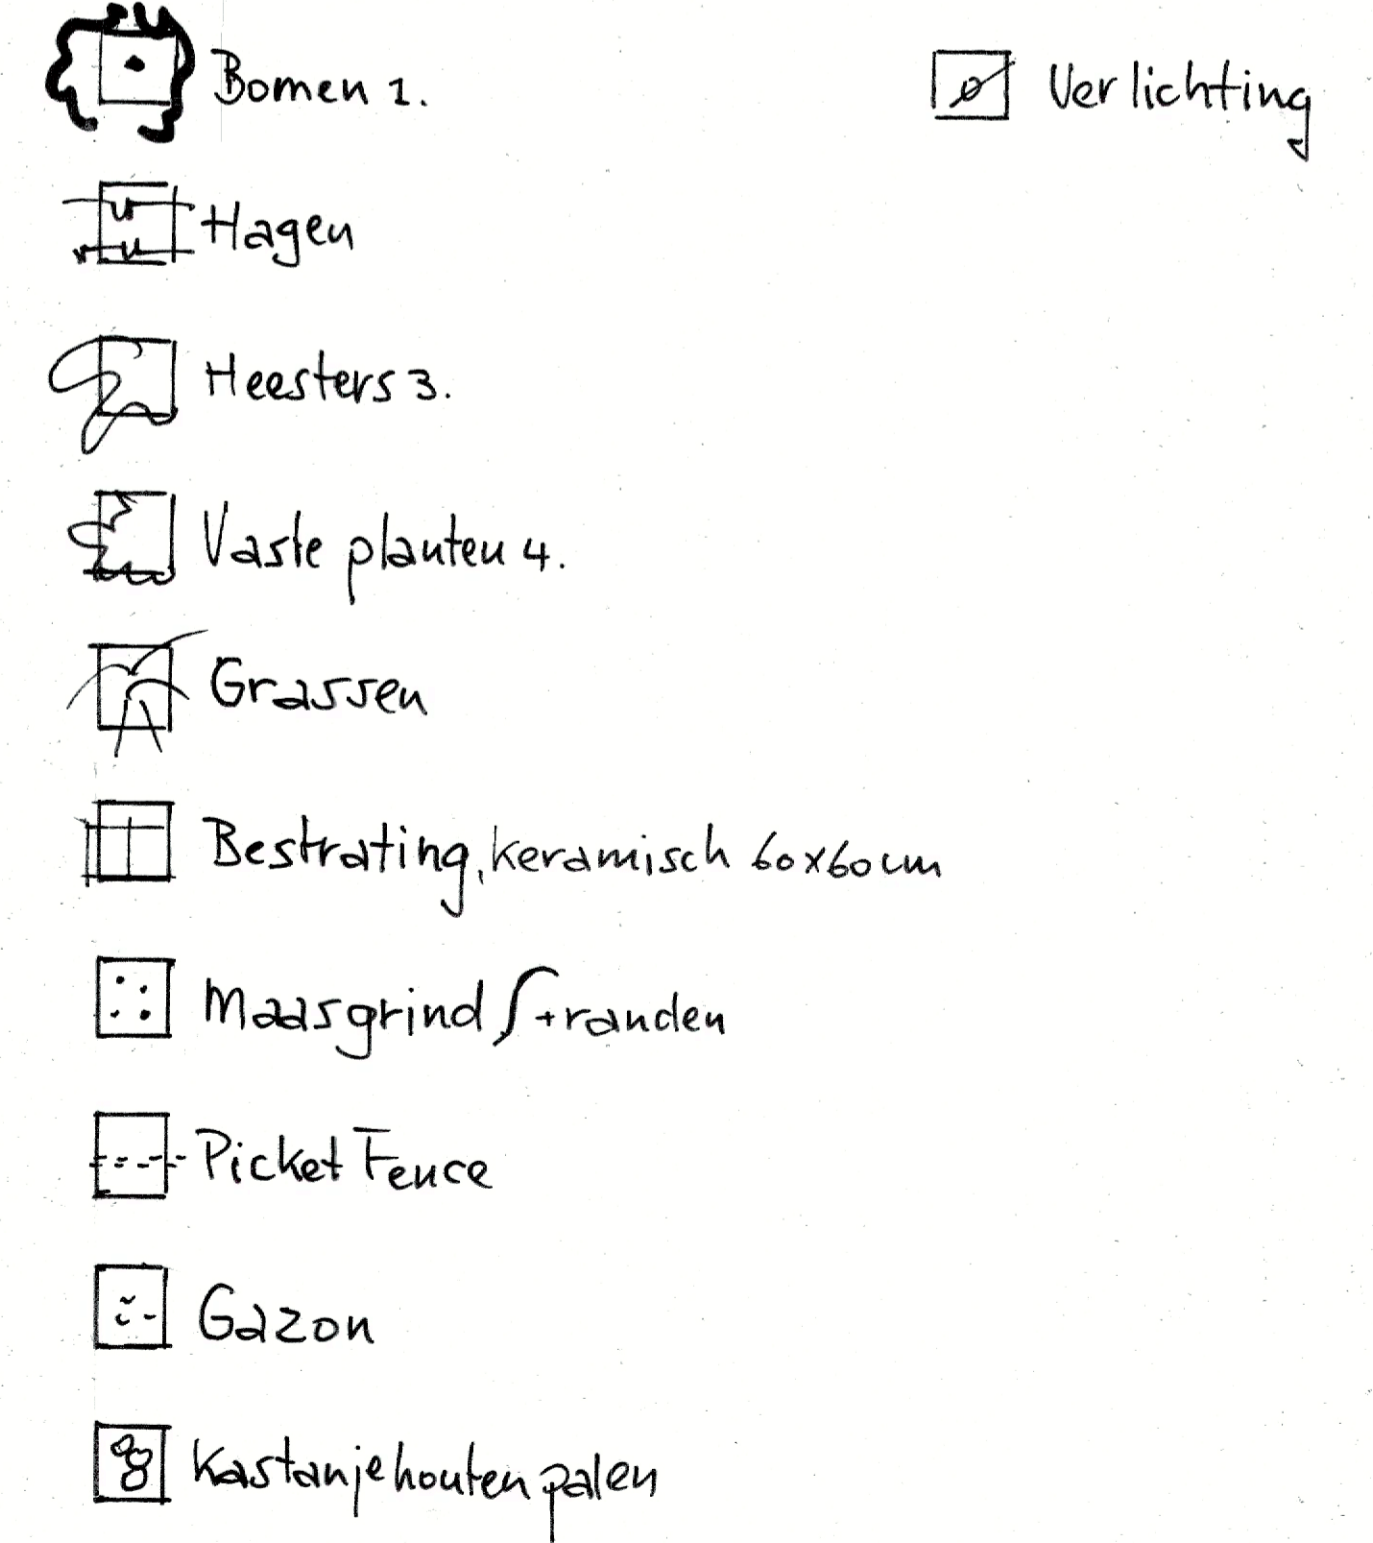 Bomen 1.
Verlichting
Hagen
Heesters 3.
Vaste planten 4.
Grassen
Bestrating, keramisch 60x60cm
Maasgrind ∫+randen
Picket Fence
Gazon
Kastanjehouten palen